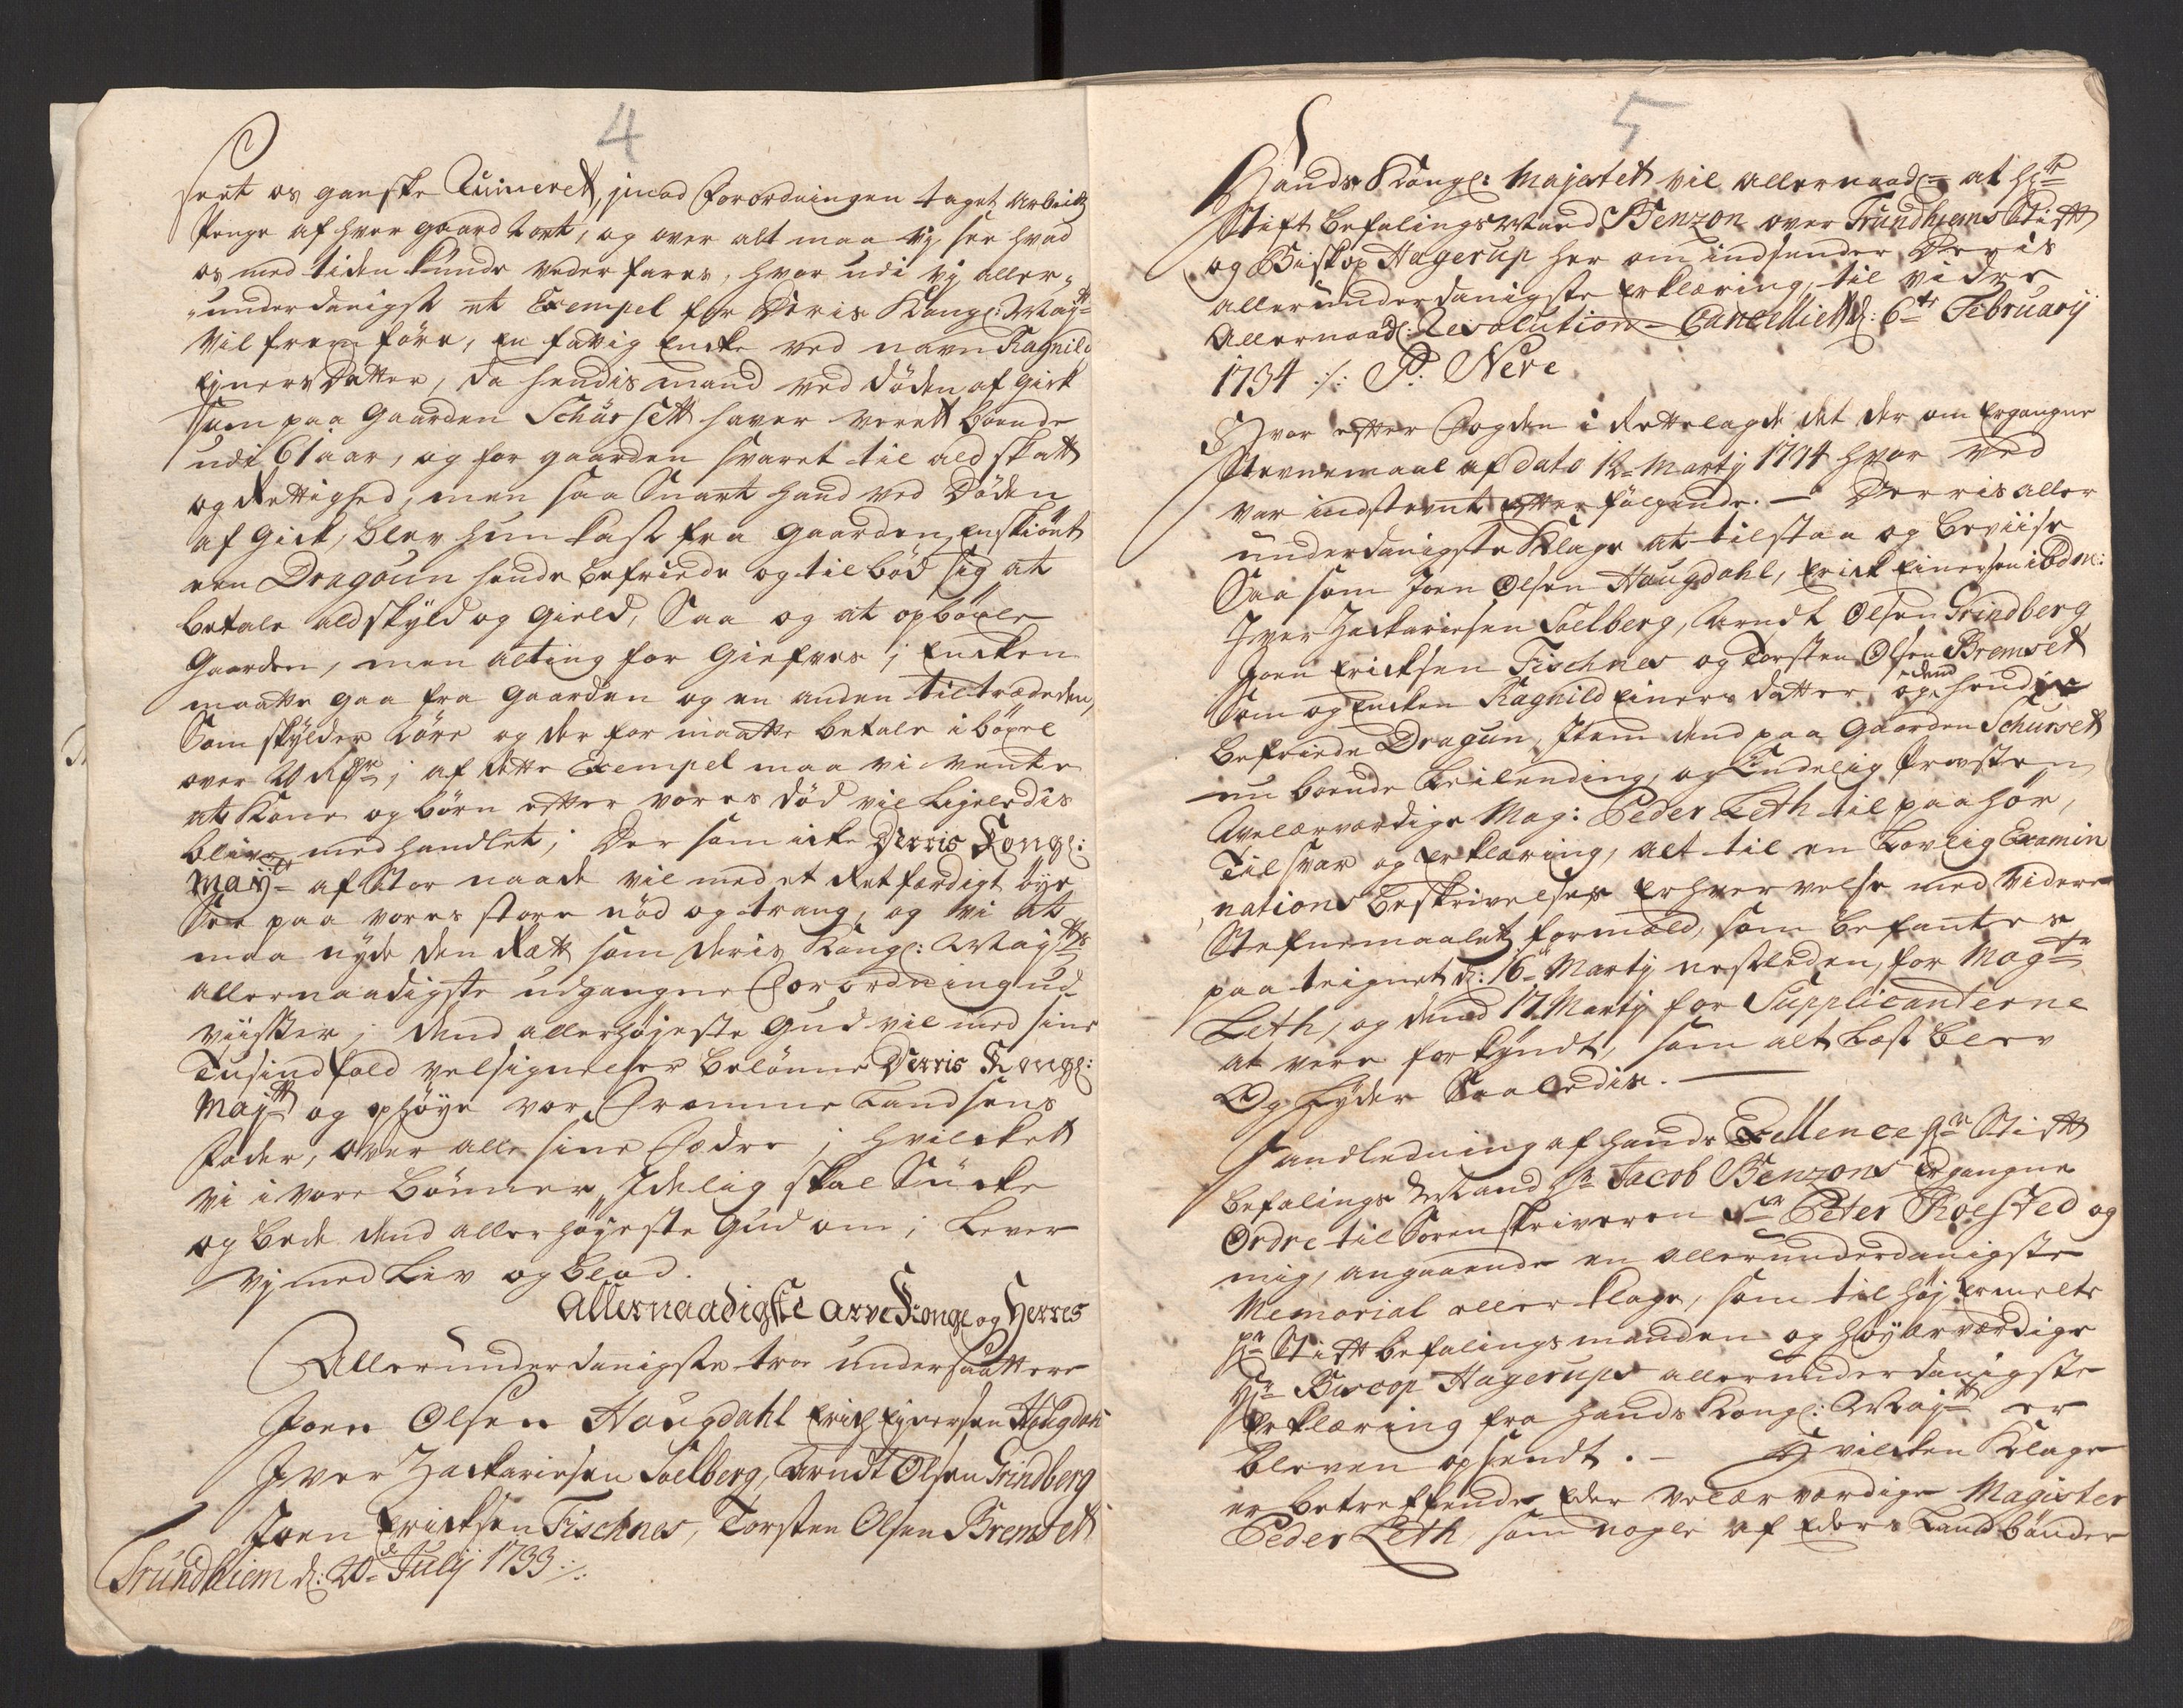 4
sent os ganske Ruineret, imod Forordningen taget arbeids
penge af hver gaard bort, og over alt maa vij see hvad
os med tiden kunde vederfares, hvor udi vij aller-
underdanigst et Exempel for Deris Kongl: May:tt
vil fremføre, en fattig Encke ved navn Ragnild
Ejners Datter, da hendis mand ved døden af gick
som paa Gaarden Schursett haver verett boende
udi 61 aar, og for gaarden svaret til ald skatt
og Rettighed, men saa snart hand ved Døden
af gick, blev hun kast fra gaarden, enskiønt
een Dragoun hende befriede og tilbød sig at
betale ald skyld og gield, saa og at opbøxle
Gaarden, men alting for giefves; Encken
maatte gaa fra Gaarden og en anden tiltræde den,
som skylder 2 ører og der for maatte betale i bøxel
over 20 Rdr; af dette Exempel maa vi vente
at Kone og børn etter vores død vil ligeledis
blive med handlet; Der som icke Derris Kongl:
May:tt af stor naade vil med et retfærdigt øye
see paa vores store nød og trang, og vi at
maa nyde den Rett som Deris Kongl: May:tts
allernaadigste udgangne Forordning ud
viister; dend allerhøjeste Gud vil med sine
Tusindfold velsignelser belønne Derris Kongl:
May:tt og ophøye vor Fromme Landsens
Fader, over alle sine Fædre; hvilcket
vi i vore bønner Idelig skal sucke
og bede dend allerhøyeste Gud om; lever
vij med Liv og blod.
Allernaadigste arve Konge og Herres
Allerunderdanigste troe undersaattere
Joen Olsen Haugdahl Erich Ejnersen Haugdahl
Iver Zackariesen Soelberg, Arndt Olsen Grindberg
Joen Ericksen Fischnes, Torsten Olsen Bremsett
Trundhiem d: 20de Julij 1733 ./.
5
Hands Kongl: Majestet vil allernaadl: at Hr:
Stift befalingsmand Benzon over Trundhiems Stift
og Biskop Hagerup her om indsender Deris
allerunderdanigste Erklæring, til vidre
Allernaadl: Resolution. Cancelliet d: 6te February
1734 ./. P: Neve
Hvor efter Fogden i Rettelagde det der om ergangne
Stevnemaal af dato 12 Martij 1734 hvor ved
var indstevnt efterfølgende. — Derris aller
underdanigste Klage at tilstaa og beviise
Saa som Joen Olsen Haugdahl, Erick Einersen ibdm:
Iver Zackariesen Soelberg, Arndt Olsen Grindberg,
Joen Ericksen Fischnes og Torsten Olsen Bremset
Som og Encken Ragnild Einers datter, og dend hendis
befriede Dragun, Item dend paa Gaarden Schursett
nu boende Leilending, og Endelig Provsten
Velærværdige Mag: Peder Leth til paahør,
Tilsvar og Erklæring, alt til en Lovlig Examin
nations beskrivelses Erhvervelse med videre
Stefnemaalets formæld, som befantes
paateignet d: 16de Martij nestleden, for Mag:tr
Leth, og dend 17 Martij for Supplicanterne
at vere forkyndt, som alt læst blev
Og lyder saaledis. —
I anledning af hands Exellence Hr: Stift
befalings Mand Hr: Jacob Benzons Ergangne
Ordre til Sorenskriveren Sr Peter Roested og
mig, angaaende en allerunderdanigste
Memorial eller klage, som til høj bemelte
Hr: Stiftbefalingsmanden og høyærværdige
Hr: Biscop Hagerups allerunderdanigste
Erklæring fra hands Kongl: May:tt er
bleven opsendt. — Hvilcken Klage
er betreffende Eder velærværdige Magister
Peder Leth som nogle af Eders Landbønder